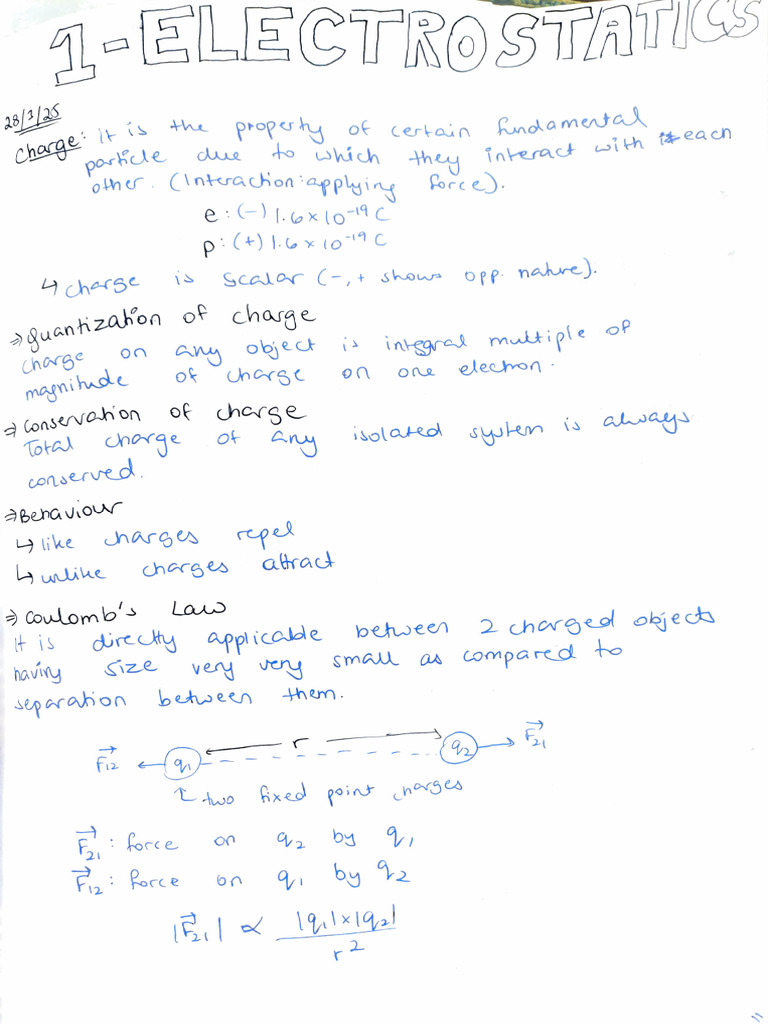 1-ELECTROSTATICS
28/3/25
Charge: it is the property of certain fundamental
particle due to which they interact with each
other. (Interaction: applying force).
e: (-) 1.6 × 10⁻¹⁹ C
p: (+) 1.6 × 10⁻¹⁹ C
↳ charge is scalar (-, + shows opp. nature).
⇒ Quantization of charge
charge on any object is integral multiple of
magnitude of charge on one electron.
⇒ Conservation of charge
Total charge of any isolated system is always
conserved.
⇒ Behaviour
↳ like charges repel
↳ unlike charges attract
⇒ Coulomb's Law
It is directly applicable between 2 charged objects
having size very very small as compared to
separation between them.
F⃗₁₂ ← q₁ ← r → q₂ → F⃗₂₁
↑ two fixed point charges
F⃗₂₁ : force on q₂ by q₁
F⃗₁₂ : force on q₁ by q₂
|F⃗₂₁| ∝ |q₁|×|q₂|
r²